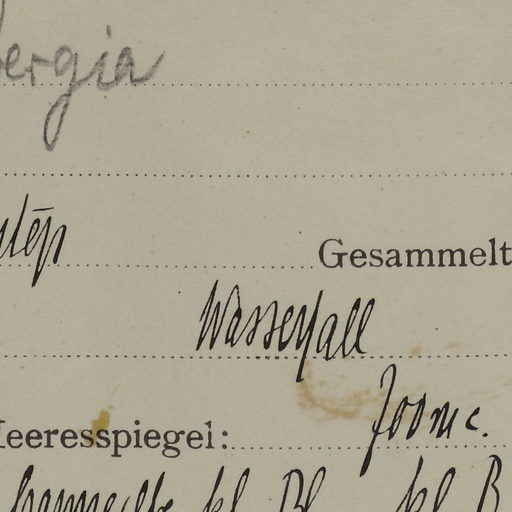 bergia
Gesammelt
Wasserfall
Meeresspiegel: 700 m c.
kl. Bl. kl. B